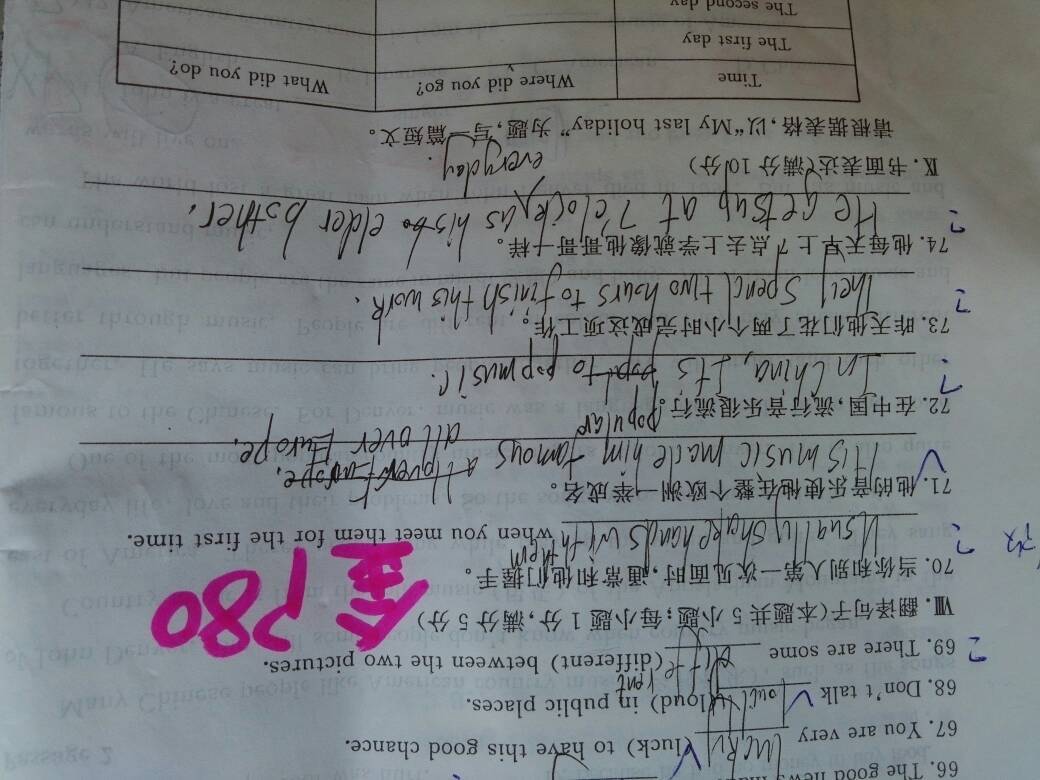 66. The good news
67. You are very lucky (luck) to have this good chance.
68. Don't talk loud (loud) in public places.
69. There are some different (different) between the two pictures.
Ⅷ. 翻译句子(本题共 5 小题;每小题 1 分,满分 5 分)
70. 当你和别人第一次见面时,通常和他们握手。
Usually shake hands with them when you meet them for the first time.
71. 他的音乐使他在整个欧洲一举成名。
His music made him famous all over Europe.
72. 在中国,流行音乐很流行。
In China, Its popular to pop music.
73. 昨天他们花了两个小时完成这项工作。
They spend two hours to finish this work.
74. 他每天早上 7 点去上学就像他哥哥一样。
He gets up at 7 o'clock everyday as his elder bother.
Ⅸ. 书面表达(满分 10 分)
请根据表格,以“My last holiday”为题,写一篇短文。
Time Where did you go? What did you do?
The first day
The second day
P80
Passage 2